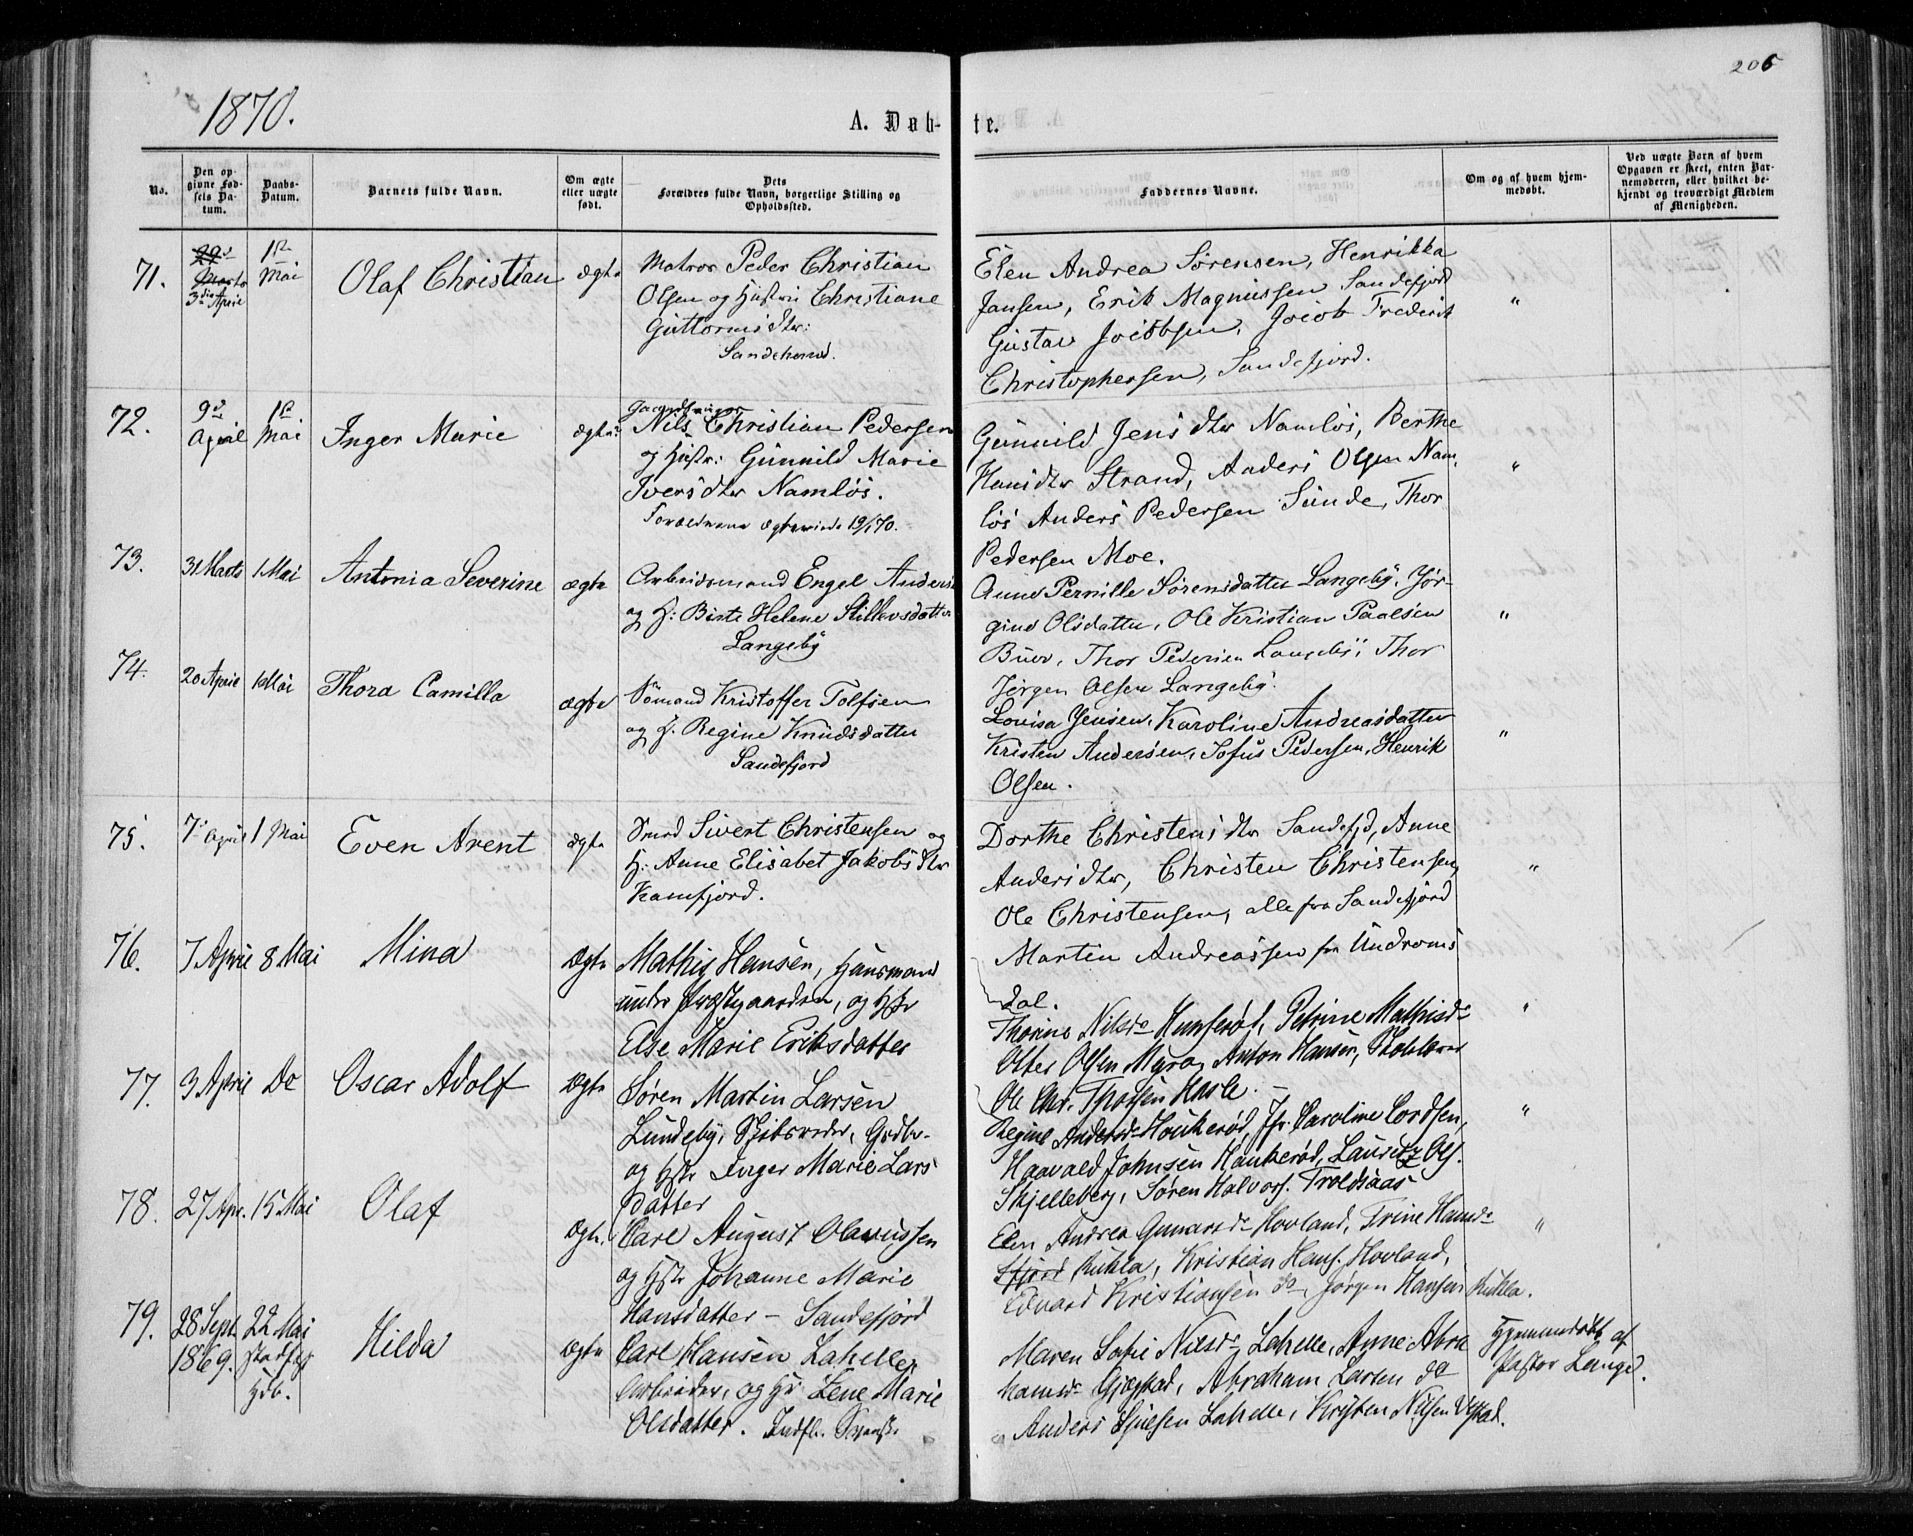 1870.
A. Døb-
te.
206
No.
Den op-
givne Fød-
sels Da-
tum.
Daabs-
Datum.
Barnets fulde Navn.
Om ægte
eller uægte
født.
Dets
Forældres fulde Navn, borgerlige Stilling og
Opholdssted.
Faddernes Navne.
Om og af hvem hjem-
medøbt.
Ved uægte Barn af hvem
Opgaven er skeet, enten Bar-
nemoderen, eller hvilket be-
kjendt og troværdigt Medlem
af Menigheden.
71.
3die April
1ste Mai
Olaf Christian
ægte
Matros Peder Christian
Olsen og Hustru Christiane
Guttormsdtr:
Sandeherred.
Elen Andrea Sørensen, Henrikka
Jansen, Erik Magnussen Sandefjord
Gustav Jacobsen, Jacob Frederik
Christophersen, Sandefjord.
"
72.
9de April
1ste Mai
Inger Marie
ægte:
Gaardbruger
Nils Christian Pedersen
og Hustr: Gunnild Marie
Iversdtr Namløs.
Forældrene ægteviede 19/1 70.
Gunnild Jensdtr Namløs, Berthe
Hansdtr Strand, Anders Olsen Nam,
løs Anders Pedersen Sunde, Thor
Pedersen Moe.
"
73.
31 Marts
1 Mai
Antonia Severine
ægte
Arbeidsmand Engel Anders
og H: Birte Helene Stillevsdatter
Langeby
Anne Pernille Sørensdatter Langeby, Jør-
gine Olsdatter, Ole Kristian Paalsen
Buer, Thor Pedersen Langeby, Thor
Jørgen Olsen Langeby.
"
74.
20 April
1 Mai
Thora Camilla
ægte
Sømand Kristoffer Tolfsen
og H. Regine Knudsdatter
Sandefjord
Lovisa Jensen, Karoline Andreasdatter
Kristen Andersen, Sofus Pedersen, Henrik
Olsen.
"
75.
7de April
1 Mai
Even Arent
ægte
Smed Sivert Christensen og
H: Anne Elisabet Jakobsdtr
Kamfjord.
Dorthe Christensdtr Sandefjd, Anne
Andersdtr, Christen Christensen,
Ole Christensen, alle fra Sandefjord
Martin Andreassen fra Undrums
dal.
"
76.
7 April
8 Mai
Mina
Ægte
Mathis Hansen, Husmand
under Præstegaarden, og Hstr
Else Marie Eriksdatter
Thorine Nilsdr Hunserød, Petrine Mathisdr
Otter Olsen Myra, Anton Hansen,
Ole Chr. Hasle.
"
77.
3 April
Do
Oscar Adolf
Ægte
Søren Martin Larsen
Lundeby, Skibsreder, Grdbr.
og Hstr Inger Marie Lars
Datter
Regine Andersdr Haukerød, Jfr. Caroline Cordsen,
Haavald Johnsen Haukerød, Lauritz Ols.
Skjelleberg, Søren Halvors. Troldsaas
"
78.
27 Apr.
15 Mai
Olaf
Ægte.
Carl August Olavussen
og Hstr Johanne Marie
Hansdatter - Sandefjord
Elen Andrea Gunarsdr Hovland, Trine Hansdr
Sfjord Kukla, Kristian Hans. Hovland,
Edvard Kristiansen do, Jørgen Hansen Kukla.
"
79.
28 Sept
1869.
22 Mai
stadfæst
Hdb.
Hilda
Ægte
Carl Hansen Lahelle,
Arbeider, og Hr Lene Marie
Olsdatter. Indfl.
Maren Sofie Nilsdr Lahelle, Anne Abra
hamsdr Gjøgstad, Abraham Larsen do
Anders Lahelle, Kristen Nilsen Vestad.
Hjemmedøbt af
Pastor Lange.